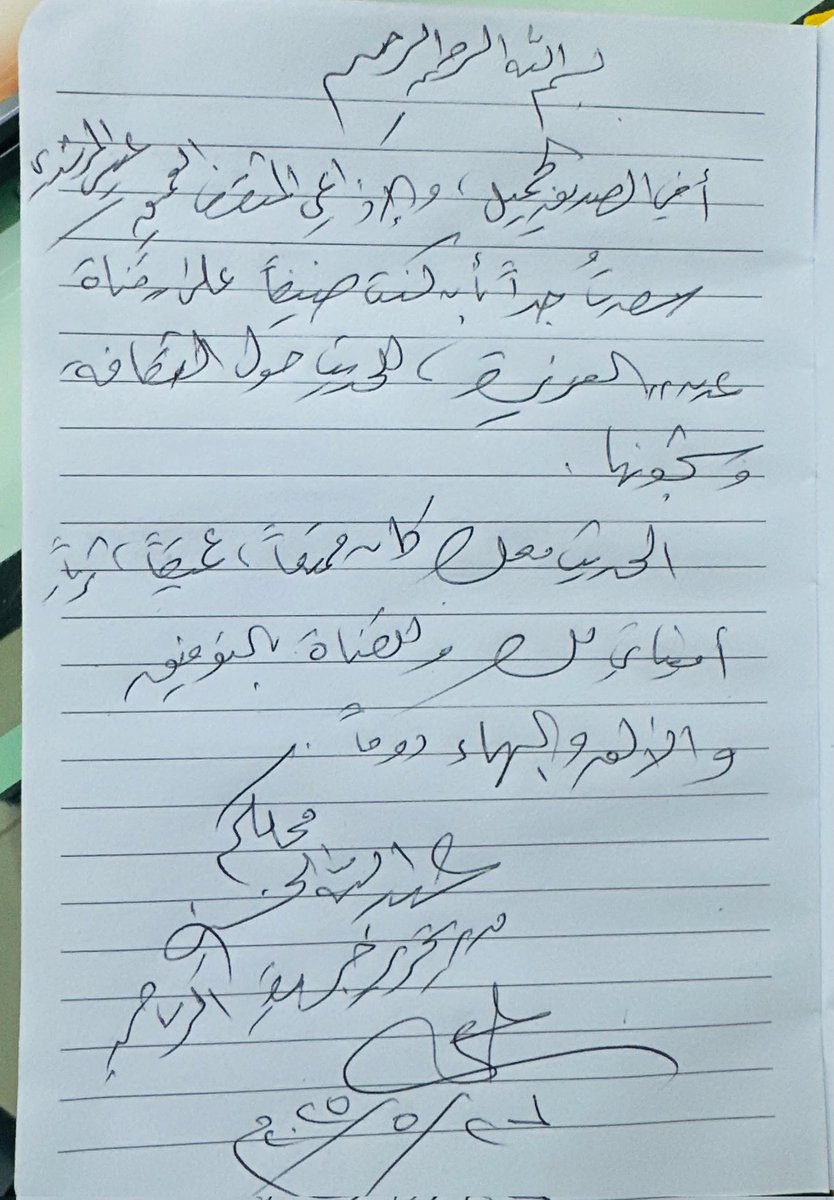 بسم الله الرحمن الرحيم
أخي الصديق الجميل، والإذاعي المثقف العميق
سعدتُ جداً بأن كنت ضيفاً على قناة
العزيزة، للحديث حول الثقافة،
وشجونها.
الحديث معك كان ممتعاً، عميقاً، ثرياً
أمنياتي لك وللقناة بالتوفيق
والألق والبهاء دوماً.
محبكم
عبدالله الحسني